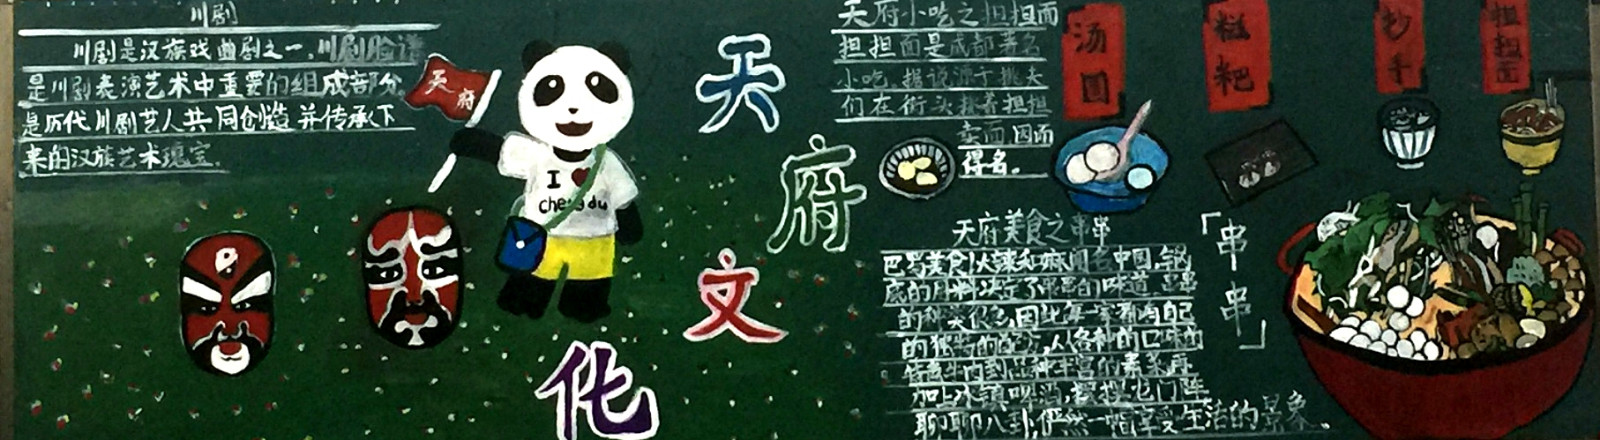 川剧
川剧是汉族戏曲剧之一,川剧脸谱
是川剧表演艺术中重要的组成部分
是历代川剧艺人共同创造并传承下
来的汉族艺术瑰宝.
天府
I
chengdu
天
府
文
化
天府小吃之担担面
担担面是成都著名
小吃.据说源于挑夫
们在街头挑着担担
卖面因而
得名.
汤圆
糍粑
抄手
担担面
天府美食之串串
巴蜀美食以火辣和麻闻名中国,锅
底的用料决定了串串的味道 串串
的种类很多,因此每一家都有自己
的独特的配方,人各种的口味的
特色牛肉到品种丰富的素菜再
加上冰镇啤酒,摆摆龙门阵
聊聊八卦,俨然一幅享受生活的景象.
「串串」